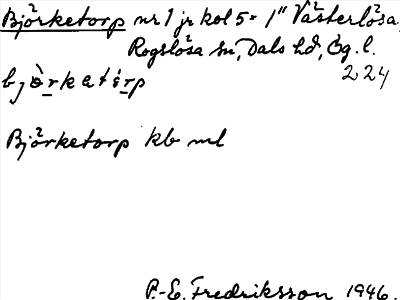 Björketorp nr 1 jr kol 5 = 1" Västerlösa,
Rogslösa sn, Dals hd, Ög. l.
224
Björketorp kb ml
P.-E. Fredriksson 1946.